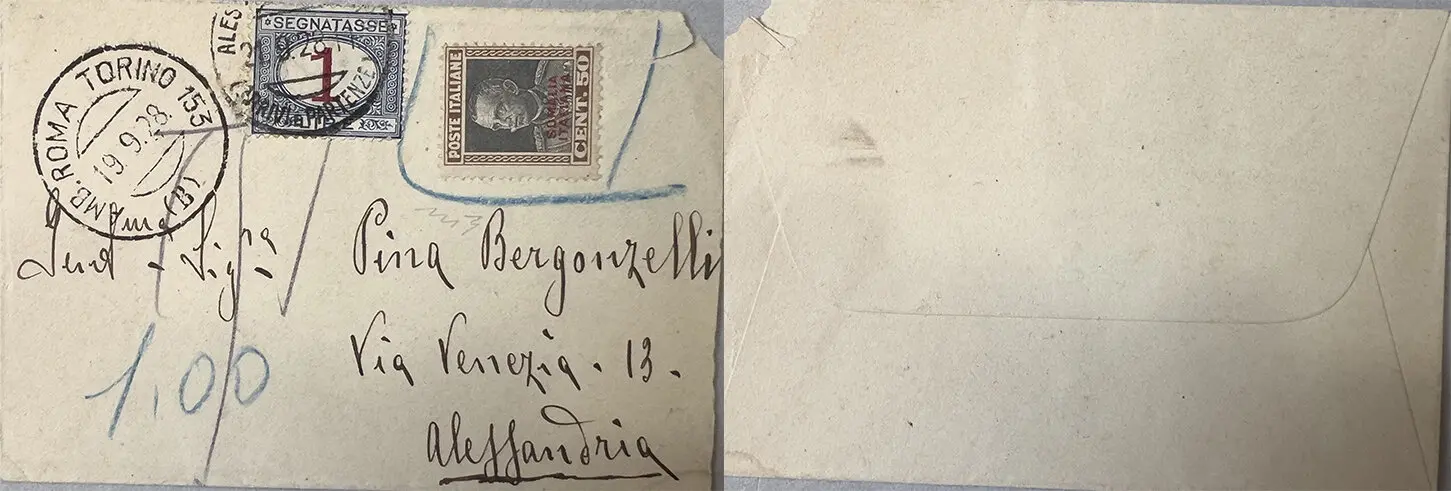 SEGNATASSE
1
POSTE ITALIANE
SOMALIA ITALIANA
CENT. 50
AMB. ROMA TORINO 153
19.9.28
(B)
ALES
ARRIVI E PARTENZE
Pina Bergonzelli
Via Venezia . 13 .
Alessandria
1.00